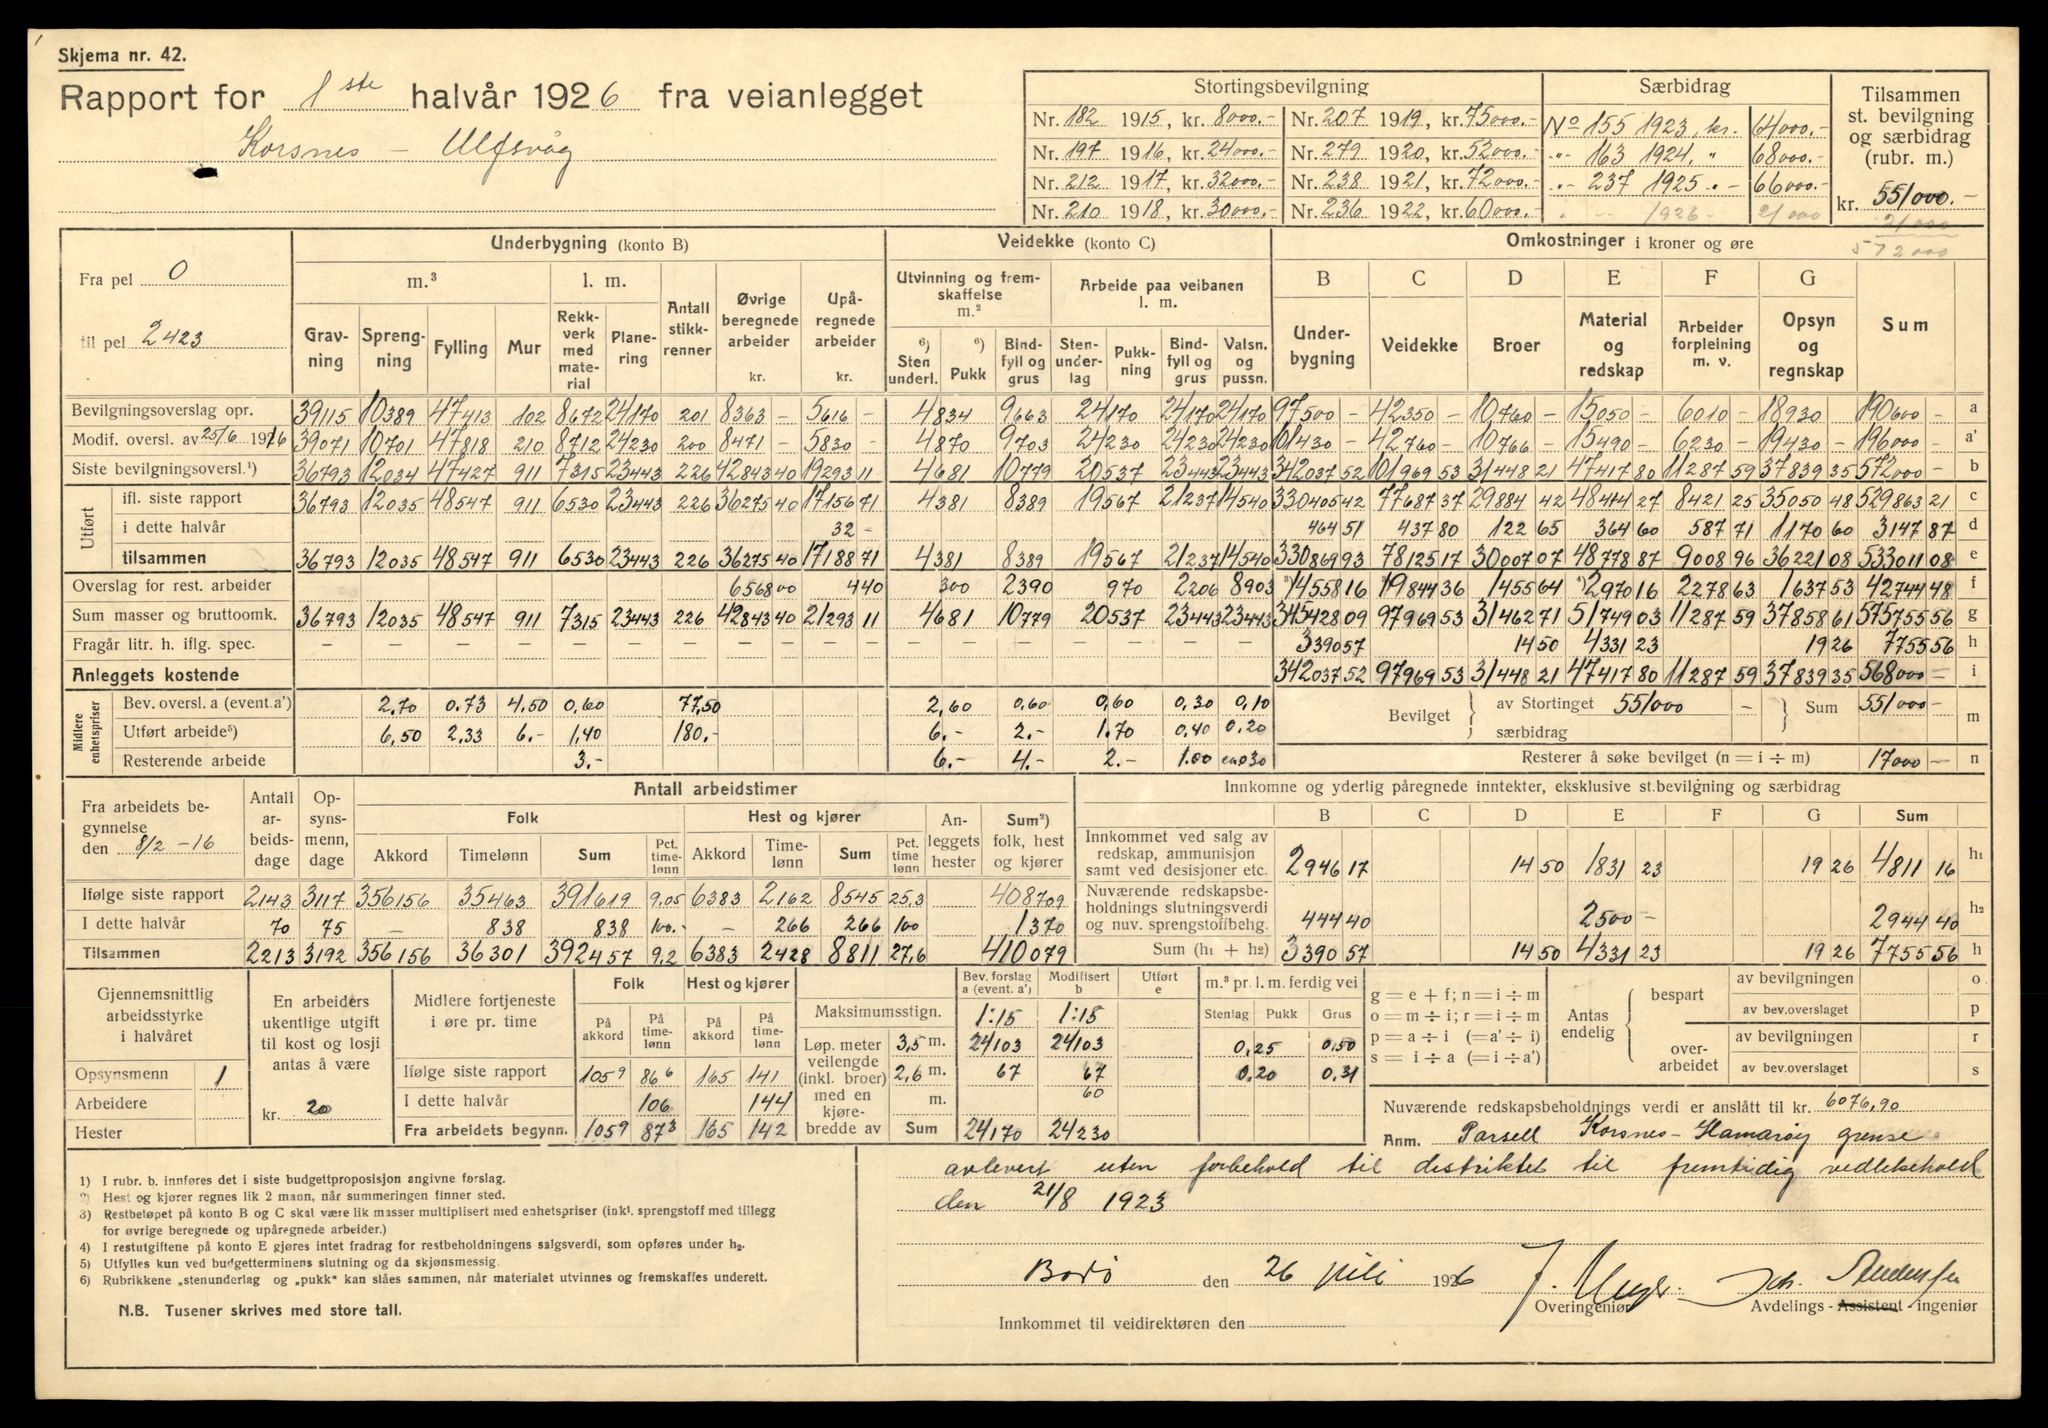 Skjema nr. 42.
Rapport for 1ste halvår 1926 fra veianlegget
Korsnes – Ulfsvåg
Stortingsbevilgning
Nr. 182 1915, kr. 8000.- Nr. 207 1919, kr. 75000.-
Nr. 197 1916, kr. 24000.- Nr. 279 1920, kr. 52000.-
Nr. 212 1917, kr. 32000.- Nr. 238 1921, kr. 72000.-
Nr. 210 1918, kr. 30000.- Nr. 236 1922, kr. 60000.-
Særbidrag
No 155 1923, kr. 64000.-
" 163 1924, " 68000.-
" 237 1925 " 66000.-
1926 - 21000
Tilsammen
st. bevilgning
og særbidrag
(rubr. m.)
kr. 551000.-
21000
572000
Fra pel 0
til pel 2423
Underbygning (konto B)
m.³ l. m.
Gravning Sprengning Fylling Mur Rekkverk med material Planering Antall stikkrenner Øvrige beregnede arbeider kr. Upåregnede arbeider kr.
Veidekke (konto C)
Utvinning og fremskaffelse m.² Arbeide paa veibanen l. m.
⁶) Sten underl. ⁶) Pukk Bindfyll og grus Stenunderlag Pukkning Bindfyll og grus Valsn. og pussn.
Omkostninger i kroner og øre
B C D E F G
Underbygning Veidekke Broer Material og redskap Arbeider forpleining m. v. Opsyn og regnskap Sum
Bevilgningsoverslag opr. 39115 10389 47413 102 8672 24170 201 8363 – 5616 – 4834 9663 24170 24170 24170 97500 – 42350 – 10760 – 15050 – 6010 – 18930 190600 – a
Modif. oversl. av 25/6 1916 39071 10701 47818 210 8712 24230 200 8471 – 5830 – 4870 9703 24230 24230 24230 101430 – 42760 – 10766 – 15490 – 6230 – 19430 – 196000 – a'
Siste bevilgningsoversl.¹) 36793 12034 47427 911 7315 23443 226 42843 40 19293 11 4681 10779 20537 23443 23443 342037 52 101969 53 31448 21 47417 80 11287 59 37839 35 572000 – b
Utført
ifl. siste rapport 36793 12035 48547 911 6530 23443 226 36275 40 17156 71 4381 8389 19567 21237 14540 330405 42 77687 37 29884 42 48414 27 8421 25 35050 48 529863 21 c
i dette halvår 32 – 464 51 437 80 122 65 364 60 587 71 1170 60 3147 87 d
tilsammen 36793 12035 48547 911 6530 23443 226 36275 40 17188 71 4381 8389 19567 21237 14540 330869 93 78125 17 30007 07 48778 87 9008 96 36221 08 533011 08 e
Overslag for rest. arbeider 6568 00 440 300 2390 970 2206 8903 ³)14558 16 ³)19844 36 1455 64 ⁴)2970 16 2278 63 1637 53 42744 48 f
Sum masser og bruttoomk. 36793 12035 48547 911 7315 23443 226 42843 40 21293 11 4681 10779 20537 23443 23443 345428 09 97969 53 31462 71 51749 03 11287 59 37858 61 575755 56 g
Fragår litr. h. iflg. spec. – – – – – – – – – – – – – – 3390 57 14 50 4331 23 19 26 7755 56 h
Anleggets kostende 342037 52 97969 53 31448 21 47417 80 11287 59 37839 35 568000 – i
Midlere enhetspriser
Bev. oversl. a (event. a') 2,70 0,73 4,50 0,60 77,50 2,60 0,60 0,60 0,30 0,10
Utført arbeide⁵) 6,50 2,33 6.- 1,40 180.- 6.- 2.- 1.70 0,40 0,20
Resterende arbeide 3.- 6.- 4.- 2.- 1.00 0.30
Bevilget av Stortinget 551000 – særbidrag Sum 551000 – m
Resterer å søke bevilget (n = i ÷ m) 17000 – n
Fra arbeidets begynnelse
den 8/2 – 16
Antall arbeidsdage Opsynsmenn, dage
Antall arbeidstimer
Folk Hest og kjører
Akkord Timelønn Sum Pct. timelønn Akkord Timelønn Sum Pct. timelønn Anleggets hester Sum²) folk, hest og kjører
Ifølge siste rapport 2143 3117 356156 35463 391619 9,05 6383 2162 8545 25,3 408709
I dette halvår 70 75 – 838 838 100.- – 266 266 100 1370
Tilsammen 2213 3192 356156 36301 392457 9.2 6383 2428 8811 27,6 410079
Innkomne og yderlig påregnede inntekter, eksklusive st.bevilgning og særbidrag
B C D E F G Sum
Innkommet ved salg av redskap, ammunisjon samt ved desisjoner etc. 2946 17 14 50 1831 23 19 26 4811 16 h₁
Nuværende redskapsbeholdnings slutningsverdi og nuv. sprengstoffbehg. 444 40 2500 – 2944 40 h₂
Sum (h₁ + h₂) 3390 57 14 50 4331 23 19 26 7755 56 h
Gjennemsnittlig
arbeidsstyrke
i halvåret
Opsynsmenn 1
Arbeidere
Hester
En arbeiders
ukentlige utgift
til kost og losji
antas å være
kr. 20
Midlere fortjeneste
i øre pr. time
Folk Hest og kjører
På akkord På timelønn På akkord På timelønn
Ifølge siste rapport 105⁹ 86⁶ 165 141
I dette halvår 106 144
Fra arbeidets begynn. 105⁹ 87³ 165 142
Bev. forslag a (event. a') Modifisert b Utført e
Maksimumsstign. 1:15 1:15
Løp. meter veilengde (inkl. broer) med en kjørebredde av
3,5 m. 24103 24103
2,6 m. 67 67
m. 60
Sum 24170 24230
m.³ pr. l. m. ferdig vei
Stenlag Pukk Grus
0,25 0,50
0,20 0,31
g = e + f; n = i ÷ m
o = m ÷ i; r = i ÷ m
p = a ÷ i (= a' ÷ i)
s = i ÷ a (= i ÷ a')
Antas endelig
bespart av bevilgningen o
av bev.overslaget p
overarbeidet av bevilgningen r
av bev. overslaget s
Nuværende redskapsbeholdnings verdi er anslått til kr. 6076,90
Anm. Parsell Korsnes – Hamarøy grense
avlevert uten forbehold til distriktet til fremtidig vedlikehold
den 21/8 1923
1) I rubr. b. innføres det i siste budgettproposisjon angivne forslag.
2) Hest og kjører regnes lik 2 mann, når summeringen finner sted.
3) Restbeløpet på konto B og C skal være lik masser multiplisert med enhetspriser (inkl. sprengstoff med tillegg
for øvrige beregnede og upåregnede arbeider.)
4) I restutgiftene på konto E gjøres intet fradrag for restbeholdningens salgsverdi, som opføres under h₂.
5) Utfylles kun ved budgetterminens slutning og da skjønsmessig.
6) Rubrikkene „stenunderlag og „pukk“ kan slåes sammen, når materialet utvinnes og fremskaffes underett.
N.B. Tusener skrives med store tall.
Bodø den 26 juli 1926
Overingeniør Avdelings - Assistent - ingeniør
Innkommet til veidirektøren den